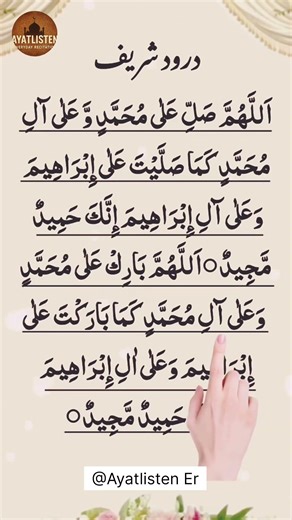 AYATLISTEN
EVERYDAY RECITATION
درود شریف
اَللّٰهُمَّ صَلِّ عَلٰى مُحَمَّدٍ وَّ عَلٰى آلِ
مُحَمَّدٍ كَمَا صَلَّيْتَ عَلٰى إِبْرَاهِيمَ
وَ عَلٰى آلِ إِبْرَاهِيمَ إِنَّكَ حَمِيدٌ
مَّجِيدٌ○اَللّٰهُمَّ بَارِكْ عَلٰى مُحَمَّدٍ
وَ عَلٰى آلِ مُحَمَّدٍ كَمَا بَارَكْتَ عَلٰى
إِبْرَاهِيمَ وَ عَلٰى اٰلِ إِبْرَاهِيمَ
حَمِيدٌ مَّجِيدٌ○
@Ayatlisten Er